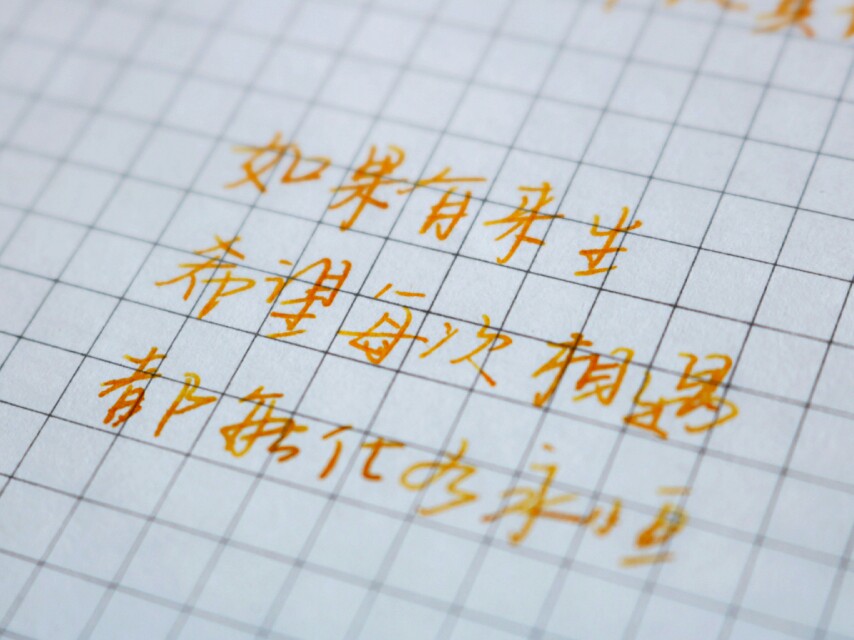 如果有来生
希望每次相遇
都能化为永恒